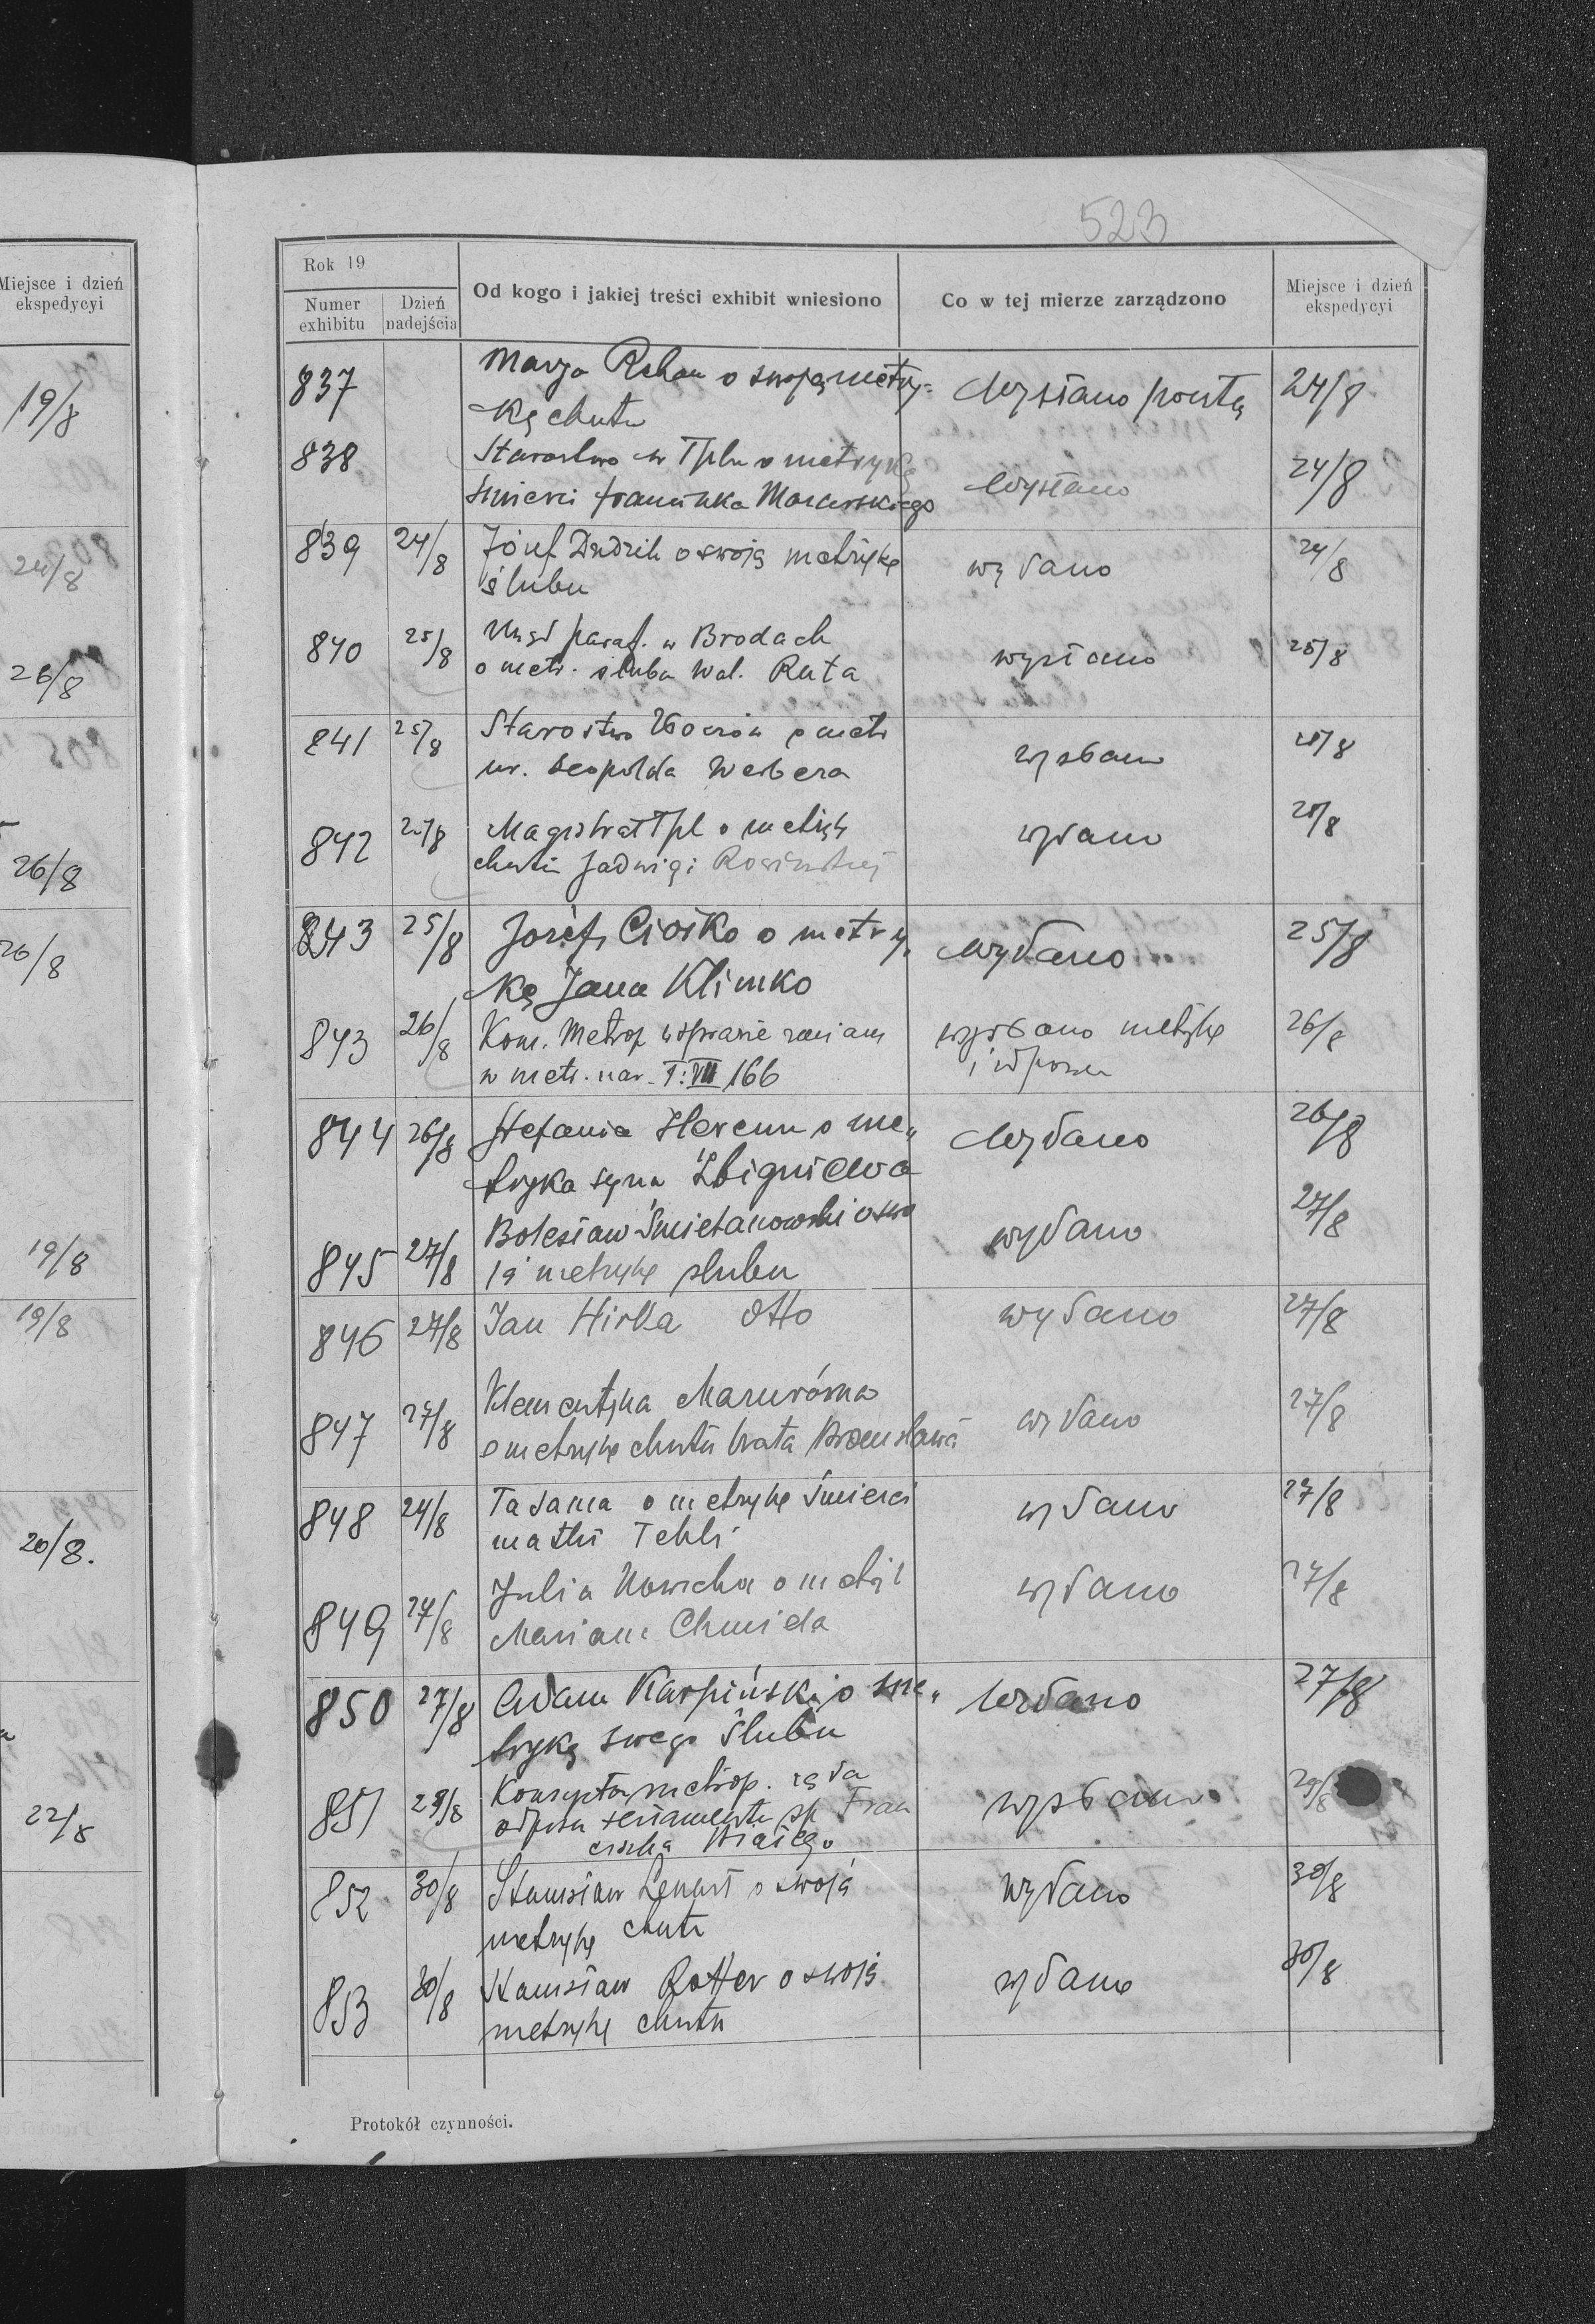 Miejsce i dzień
ekspedycyi
19/8
24/8
26/8
26/8
26/8
19/8
19/8
20/8.
22/8
523
Rok 19
Numer
exhibitu
Dzień
nadejścia
Od kogo i jakiej treści exhibit wniesiono
Co w tej mierze zarządzono
Miejsce i dzień
ekspedycyi
837 Marja o swoją metry-
kę chrztu
Wysłano pocztą 24/8
838 Starostwo w Tplu o metrykę
śmierci Franciszka
Wysłano 24/8
839 24/8 Józef Dudzik o swoją metrykę
ślubu
wydano 24/8
840 25/8 Urząd paraf. w Brodach
o metr. ślubu Wal. Ruta
wysłano 25/8
841 25/8 Starostwo o metr
ur. Leopolda Webera
wysłano 25/8
842 25/8 Magistrat Tpl o metrykę
chrztu Jadwigi
wydano 25/8
843 25/8 Józef Ciośko o metry-
kę Jana Klimko
wydano 25/8
843 26/8 Kons. Metrop w sprawie zmiany
w metr. nar. T: VII 166
wysłano metrykę
i odpow
26/8
844 26/8 Stefania o me„
tryka syna Zbigniewa
Wydano 26/8
845 27/8 Bolesław Śmietanowski o swo
ją metrykę ślubu
wydano 27/8
846 27/8 Jan Hirka otto
wydano 27/8
847 27/8 Klementyna Mazurówna
o metrykę chrztu brata Bronisława
wydano 27/8
848 27/8 Ta sama o metrykę śmierci
matki Tekli
wydano 27/8
849 27/8 Julia Nowicka o metr
Mariana Chmiela
wydano 27/8
850 27/8 Adam Karpiński o me„
trykę swego ślubu
Wydano 27/8
851 29/8 Konsystorz metrop. żąda
odpisu testamentu śp Fran
ciszka
wysłano 29/8
852 30/8 Stanisław Lenart o swoją
metrykę chrztu
wydano 30/8
853 30/8 Stanisław Rotter o swoją
metrykę chrztu
wydano 30/8
Protokół czynności.